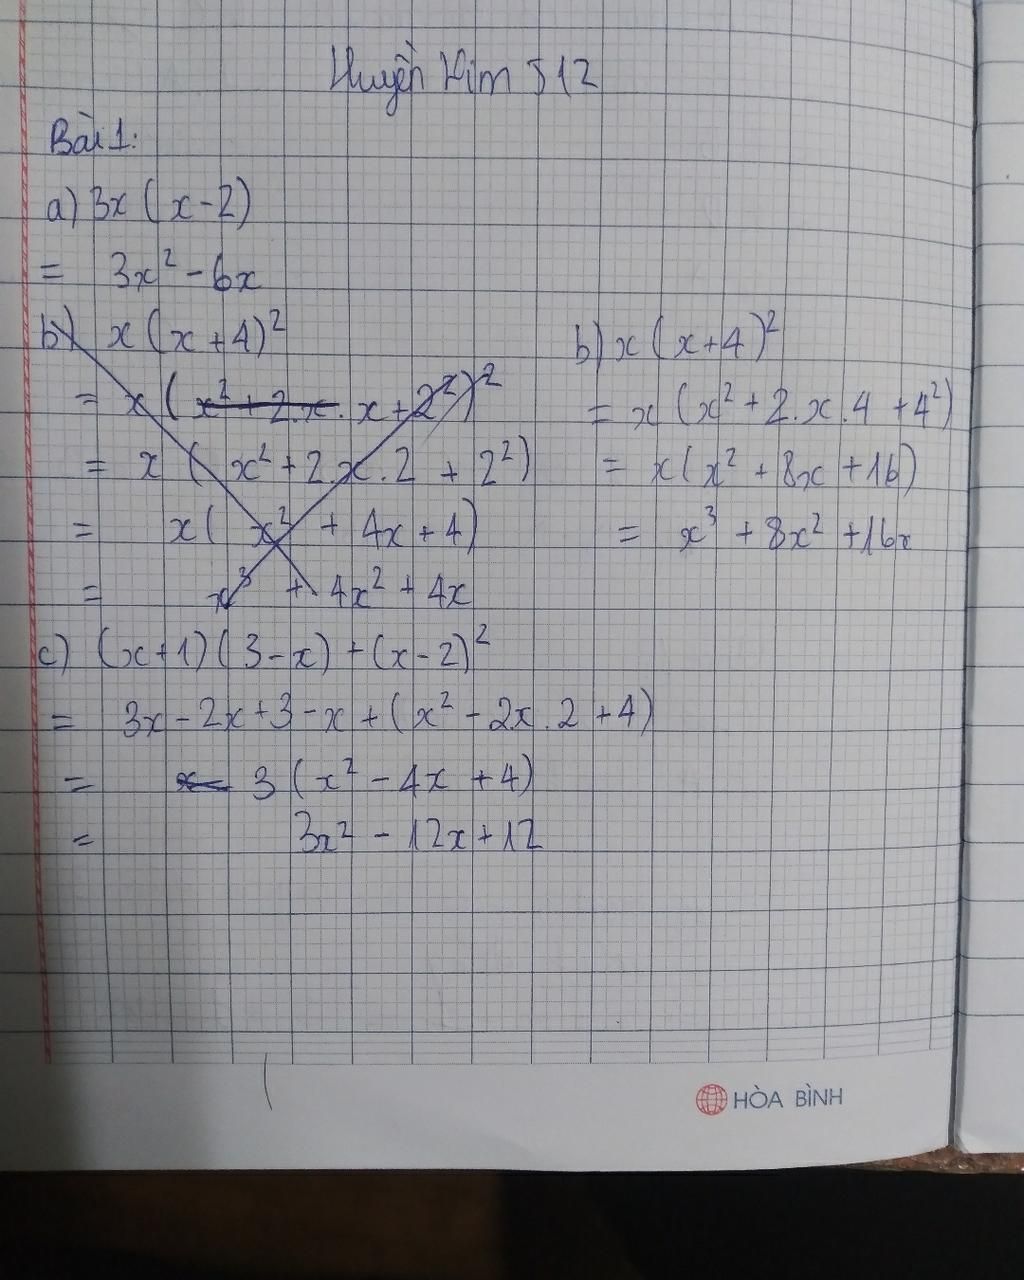 Huyền Kim 512
Bài 1:
a) 3x (x - 2)
= 3x² - 6x
b) x (x + 4)²
= x ( x² + 2.x. x + 2²)²
= x ( x² + 2.x.2 + 2²)
= x( x² + 4x + 4)
= x³ + 4x² + 4x
b) x (x+4)²
= x (x² + 2.x.4 + 4²)
= x(x² + 8x + 16)
= x³ + 8x² + 16x
c) (x+1)(3-x) + (x-2)²
= 3x - 2x + 3 - x + (x² - 2x.2 + 4)
= 3 (x² - 4x + 4)
= 3x² - 12x + 12
HÒA BÌNH